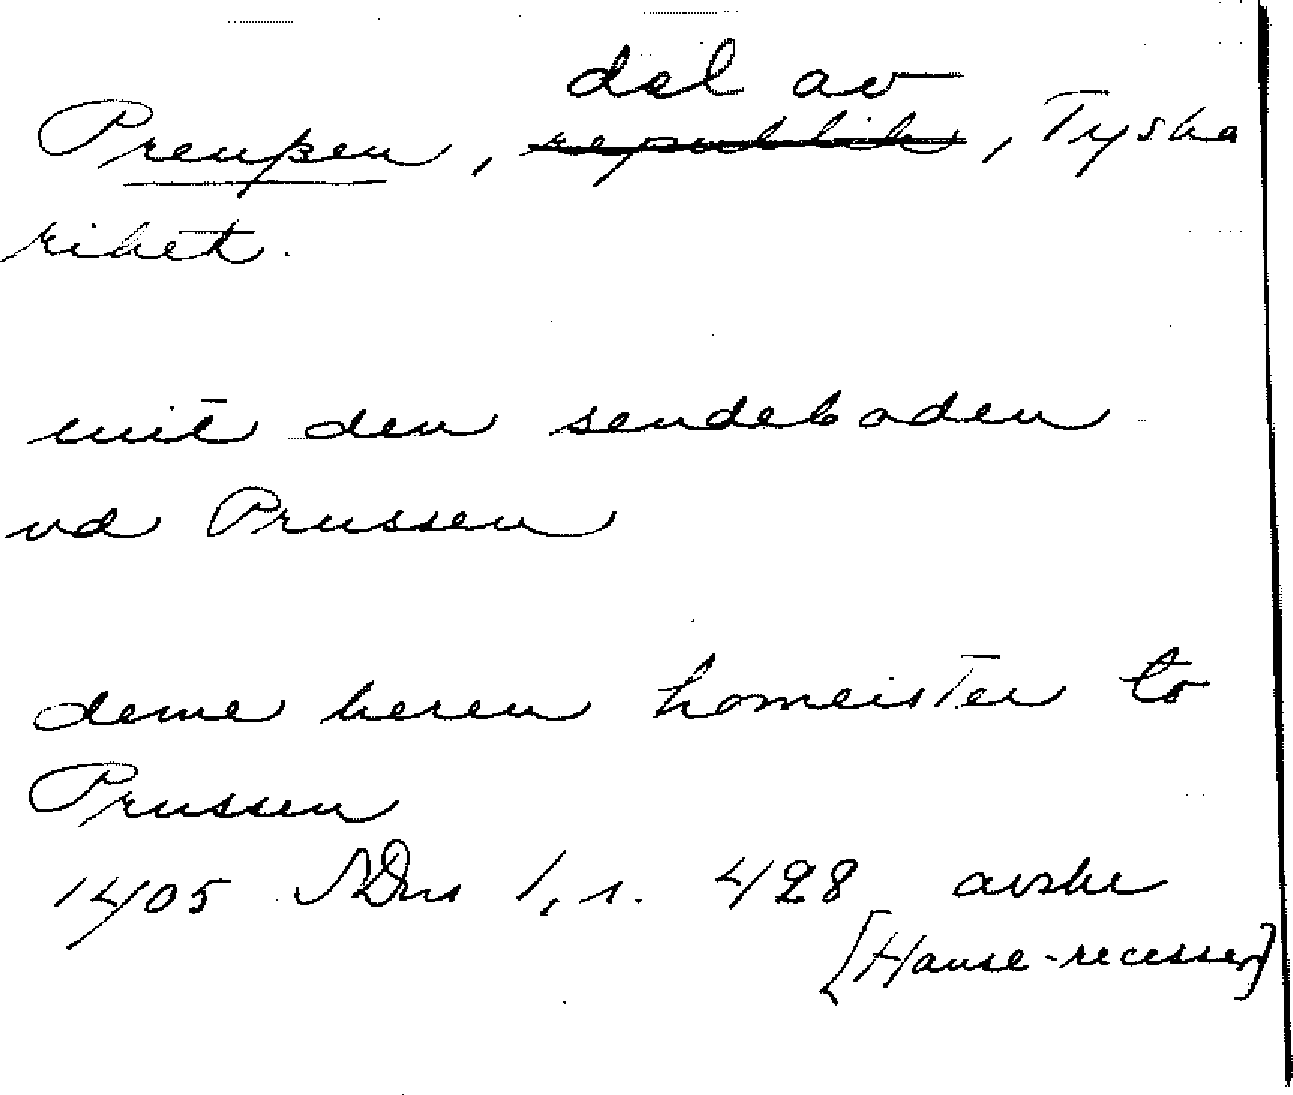 del av
Preußen, republik, Tyska
riket.
mit den sendeboden
vd Prussen
deme heren homeister to
Prussen
1405 SDns 1, s. 428 avskr
[Hanse-recesser]